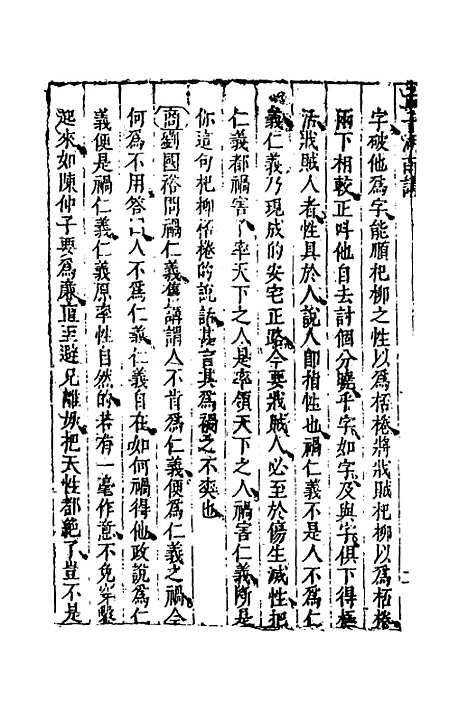 字破他為字能順杞柳之性以為桮棬將戕賊杞柳以為桮棬
兩下相較正呌他自去計個分曉乎字如字及與字俱下得極
活戕賊人者性具於人說人卽指性也禍仁義不是人不為仁
義仁義乃現成的安宅正路今要戕賊人必至於傷生滅性把
仁義都禍害了率天下之人是率領天下之人禍害仁義斷是
你這句杞柳桮棬的說話甚言其為禍之不爽也
商劉國裕問禍仁義舊講謂人不肯為仁義便為仁義之禍今
何為不用答曰人不為仁義仁義自在如何禍得他政說為仁
義便是禍仁義仁義原率性自然的若有一毫作意不免穿鑿
起來如陳仲子要為廉直至避兄離母把天性都絶了豈不是